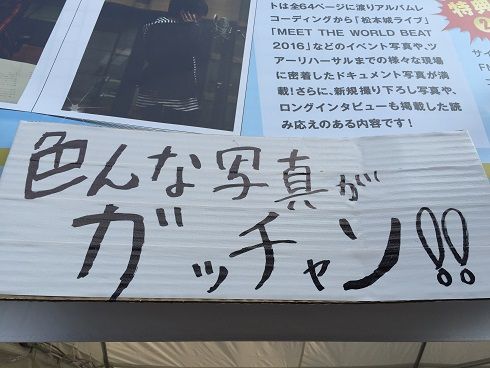 トは全64ページに渡りアルバムレ
コーディングから「松本城ライブ」
「MEET THE WORLD BEAT
2016」などのイベント写真や、ツ
アーリハーサルまでの様々な現場
に密着したドキュメント写真が満
載!さらに、新規撮り下ろし写真や、
ロングインタビューも掲載した読
み応えのある内容です!
特典
②
サイ
色んな写真が
ガッチャン!!